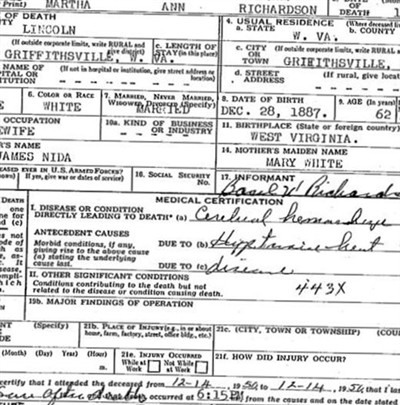 Print) MARTHA ANN RICHARDSON OF DEATH 1
OF DEATH 4. USUAL RESIDENCE (Where deceased
a. STATE b. COUNTY
LINCOLN W. VA.
(If outside corporate limits, write RURAL and give district) c. LENGTH OF STAY (in this place) c. CITY OR TOWN (If outside corporate limits, write RURAL and
GRIFFITHSVILLE, W. VA. GRIFITHSVILLE,
(If not in hospital or institution, give street address or location) d. STREET ADDRESS (If rural, give locat
PITAL OR INSTITUTION
6. COLOR OR RACE 7. MARRIED, NEVER MARRIED, WIDOWED, DIVORCED (Specify) 8. DATE OF BIRTH 9. AGE (In years
WHITE MARRIED DEC. 28, 1887. 62
OCCUPATION 10a. KIND OF BUSINESS OR INDUSTRY 11. BIRTHPLACE (State or foreign country)
EWIFE WEST VIRGINIA.
R'S NAME 14. MOTHER'S MAIDEN NAME
JAMES NIDA MARY WHITE
EASED EVER IN U.S. ARMED FORCES? 16. SOCIAL SECURITY 17. INFORMANT
(If yes, give war or dates of service) Basil W Richards
MEDICAL CERTIFICATION
I. DISEASE OR CONDITION
DIRECTLY LEADING TO DEATH* (a) Cerebral hemorrhage
ANTECEDENT CAUSES
Morbid conditions, if any, giving rise to the above cause (a) stating the underlying cause last.
DUE TO (b)
DUE TO (c) disease
II. OTHER SIGNIFICANT CONDITIONS
Conditions contributing to the death but not related to the disease or condition causing death.
443X
19b. MAJOR FINDINGS OF OPERATION
21b. PLACE OF INJURY (e.g., in or about home, farm, factory, street, office bldg., etc.) 21c. (CITY, TOWN OR TOWNSHIP) (COUN
(Month) (Day) (Year) (Hour) 21e. INJURY OCCURRED 21f. HOW DID INJURY OCCUR?
While at Work Not While at Work
certify that I attended the deceased from 12-14, 1950 to 12-14, 1950, that I last
occurred at 6:15 P m., from the causes and on the date stated